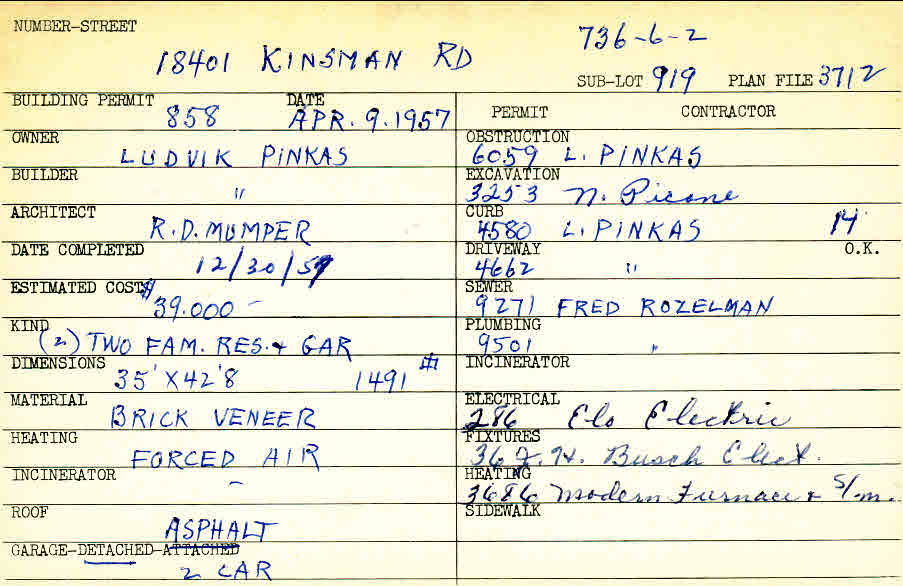 NUMBER-STREET
18401 KINSMAN RD
736-6-2
SUB-LOT 919 PLAN FILE 3712
BUILDING PERMIT DATE
858 APR. 9. 1957
OWNER
LUDVIK PINKAS
BUILDER
"
ARCHITECT
R.D. MUMPER
DATE COMPLETED
12/30/57
ESTIMATED COST $
39.000 -
KIND
(2) TWO FAM. RES. + GAR
DIMENSIONS
35' X 42'8 1491 #
MATERIAL
BRICK VENEER
HEATING
FORCED AIR
INCINERATOR
-
ROOF
ASPHALT
GARAGE-DETACHED-ATTACHED
2 CAR
PERMIT CONTRACTOR
OBSTRUCTION
6059 L. PINKAS
EXCAVATION
3253 N. Picone
CURB
4580 L. PINKAS 14
DRIVEWAY O.K.
4662 "
SEWER
9271 FRED ROZELMAN
PLUMBING
9501 "
INCINERATOR
ELECTRICAL
286 Elo Electric
FIXTURES
36 F.H. Busch Elect.
HEATING
3686 Modern Furnace & S/m.
SIDEWALK